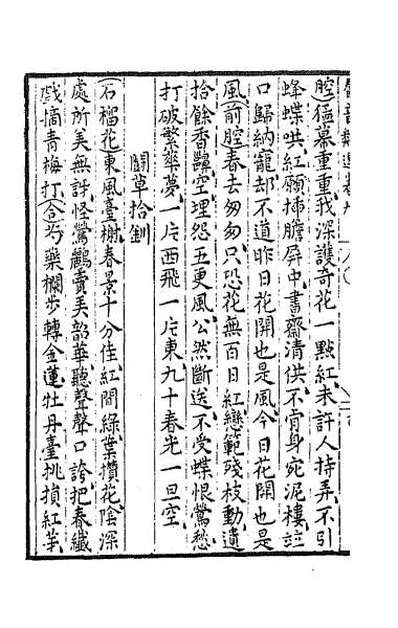 腔)猛幕重重我深護奇花一點紅未許人持弄不引
蜂蝶哄紅願揷膽屏中書齋清供不肯身宛泥樓竝
口歸納寵却不道昨日花開也是風今日花開也是
風(前腔)春去匆匆只恐花無百日紅戀範殘枝動遺
拾餘香龔空埋怨五更風公然斷送不受蝶恨鶯愁
打破繁華夢一片西飛一片東九十春光一旦空
鬭草拾釧
(石榴花)東風臺榭春景十分佳紅間綠葉攢花陰深
處所美無訝怪鶯鸝賣美韶華聽聲聲口誇把春纖
戲摘青梅打(合)芍藥欄步轉金蓮牡丹臺挑損紅芽